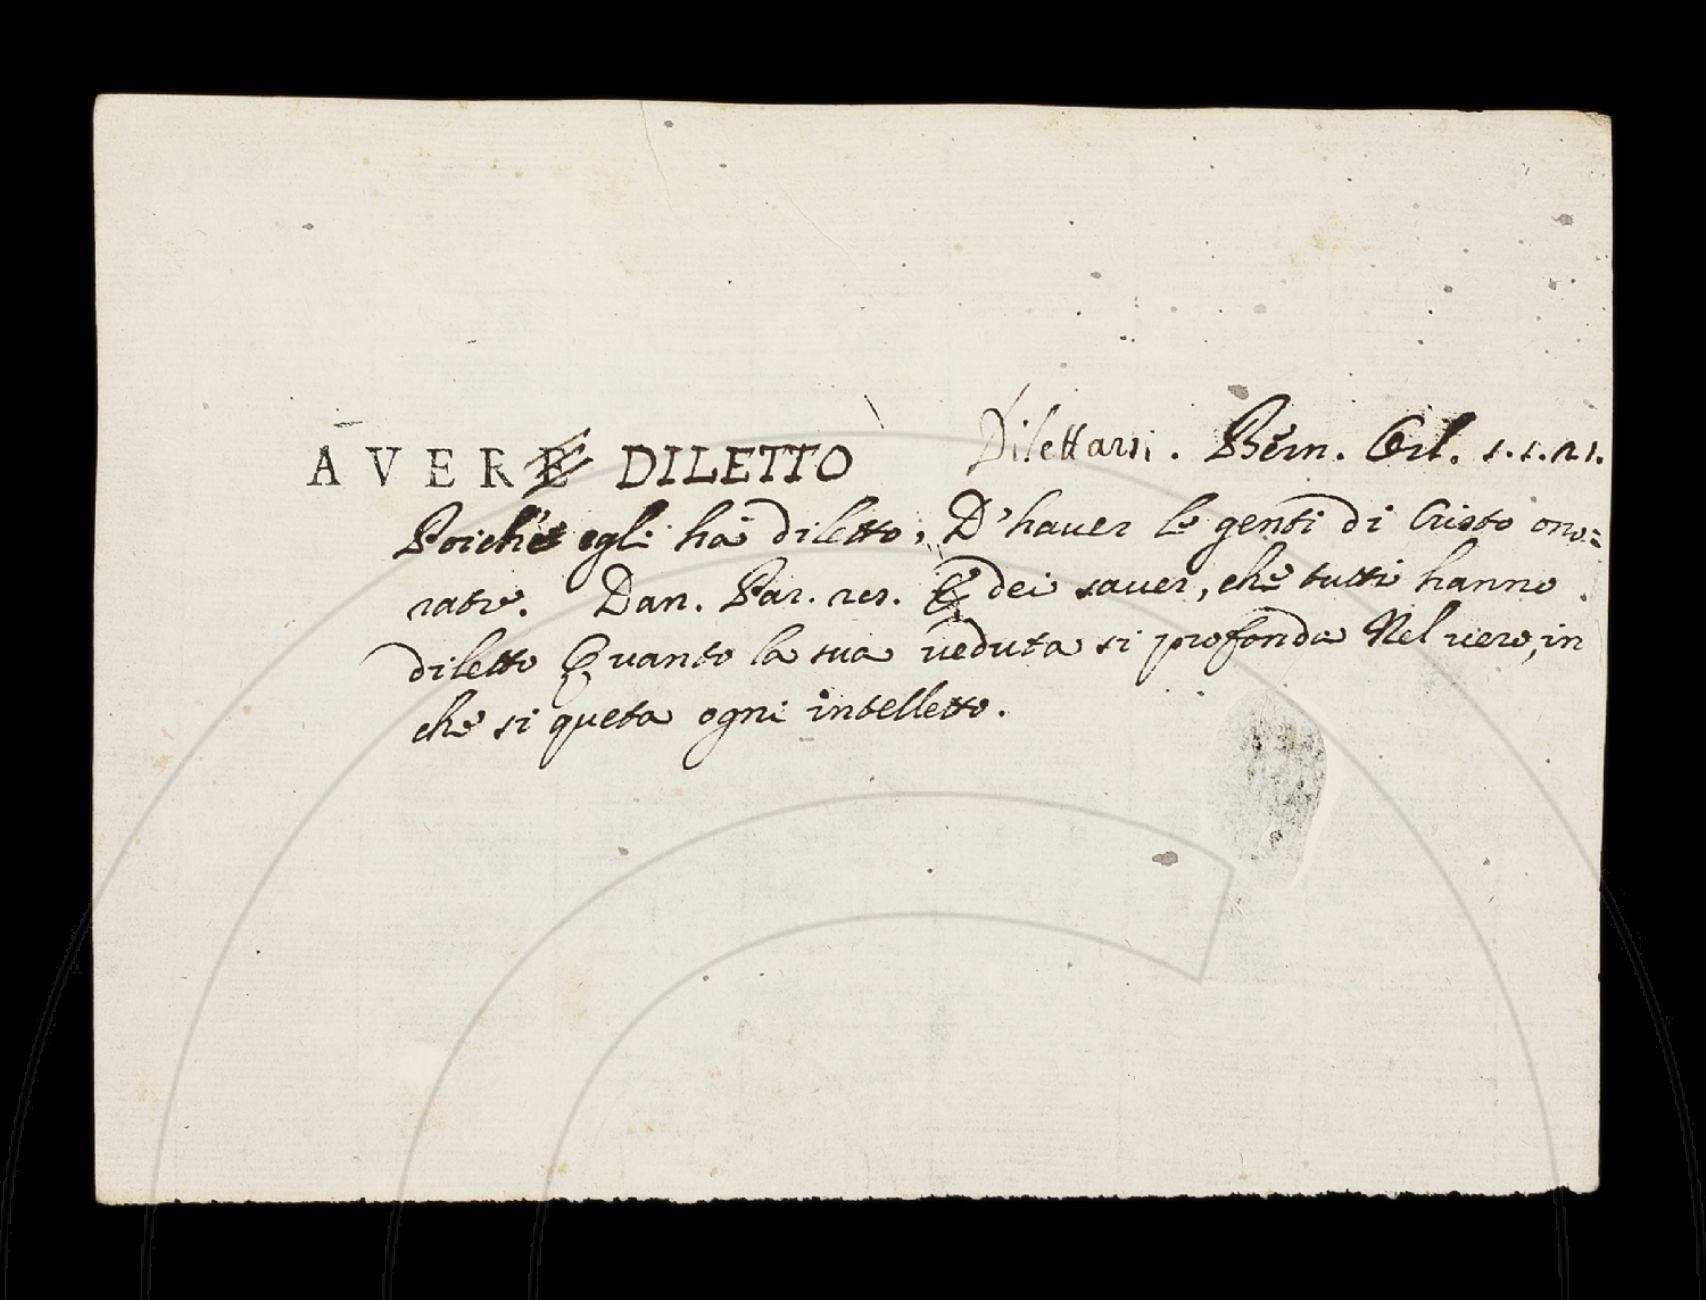 AVERE DILETTO Dilettarsi. Bern. Orl. 1.1.21.
Poichè egli hà diletto, D'haver le genti di Cristo ono=
rate. Dan. Par. 28. E dei saver, che tutti hanno
diletto Quanto la sua veduta si profonda Nel vero, in
che si queta ogni intelletto.